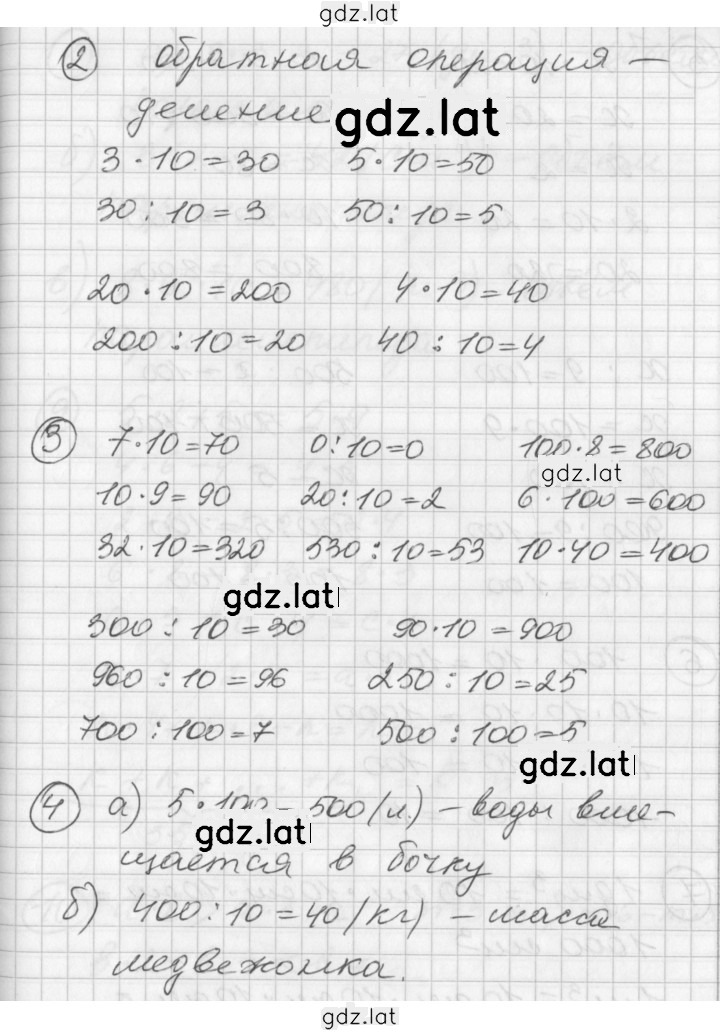 gdz.lat
2 обратная операция —
деление
gdz.lat
3 · 10 = 30 5 · 10 = 50
30 : 10 = 3 50 : 10 = 5
20 · 10 = 200 4 · 10 = 40
200 : 10 = 20 40 : 10 = 4
3 7 · 10 = 70 0 : 10 = 0 100 · 8 = 800
gdz.lat
10 · 9 = 90 20 : 10 = 2 6 · 100 = 600
32 · 10 = 320 530 : 10 = 53 10 · 40 = 400
gdz.lat
300 : 10 = 30 90 · 10 = 900
960 : 10 = 96 250 : 10 = 25
700 : 100 = 7 500 : 100 = 5
gdz.lat
4 а) 5 · 100 = 500 (л.) – воды вме-
gdz.lat
щается в бочку
б) 400 : 10 = 40 (кг) – масса
медвежонка.
gdz.lat